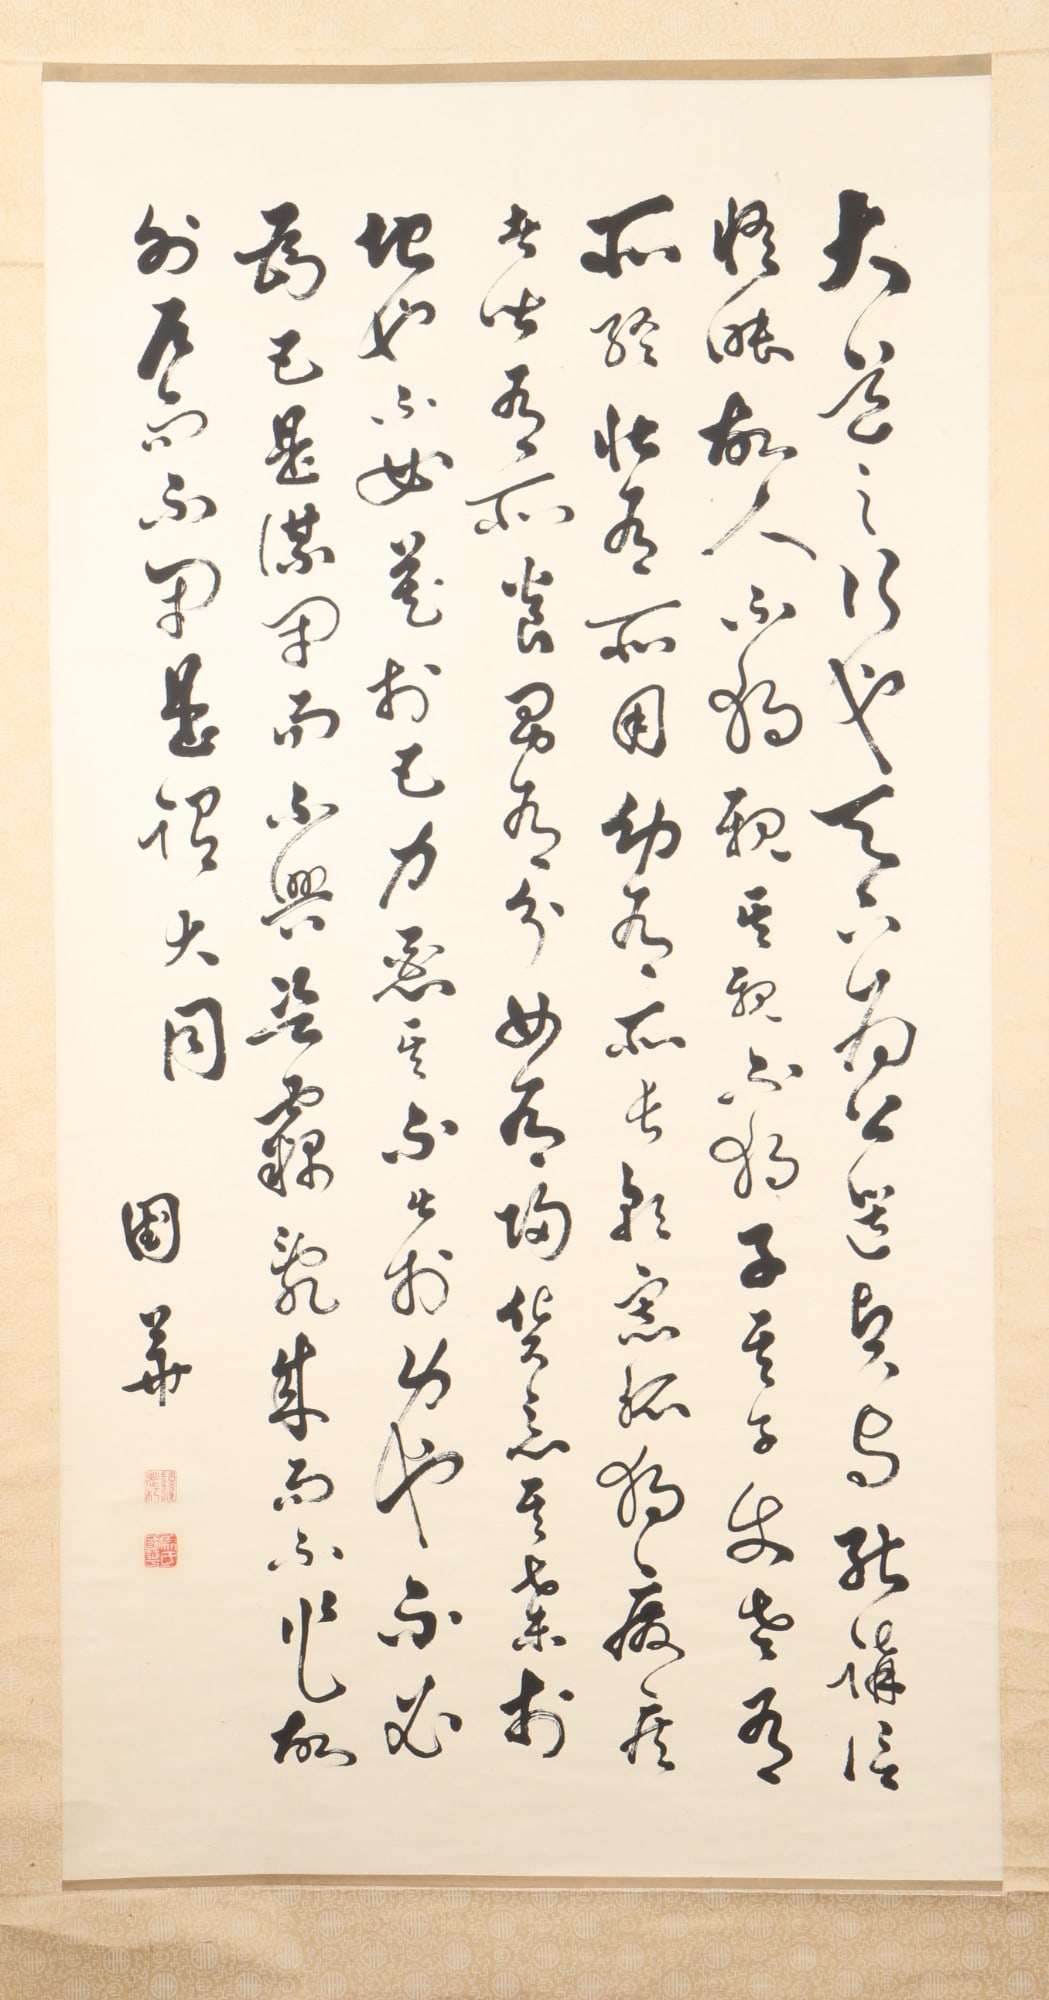 大道之行也天下為公選賢與能講信
修睦故人不獨親其親不獨子其子使老有
所終壯有所用幼有所長鰥寡孤獨廢疾
者皆有所養男有分女有歸貨惡其棄於
地也不必藏於己力惡其不出於身也不必
為己是謀閉而不興盜竊亂賊而不作故
外戶而不閉是謂大同
國華